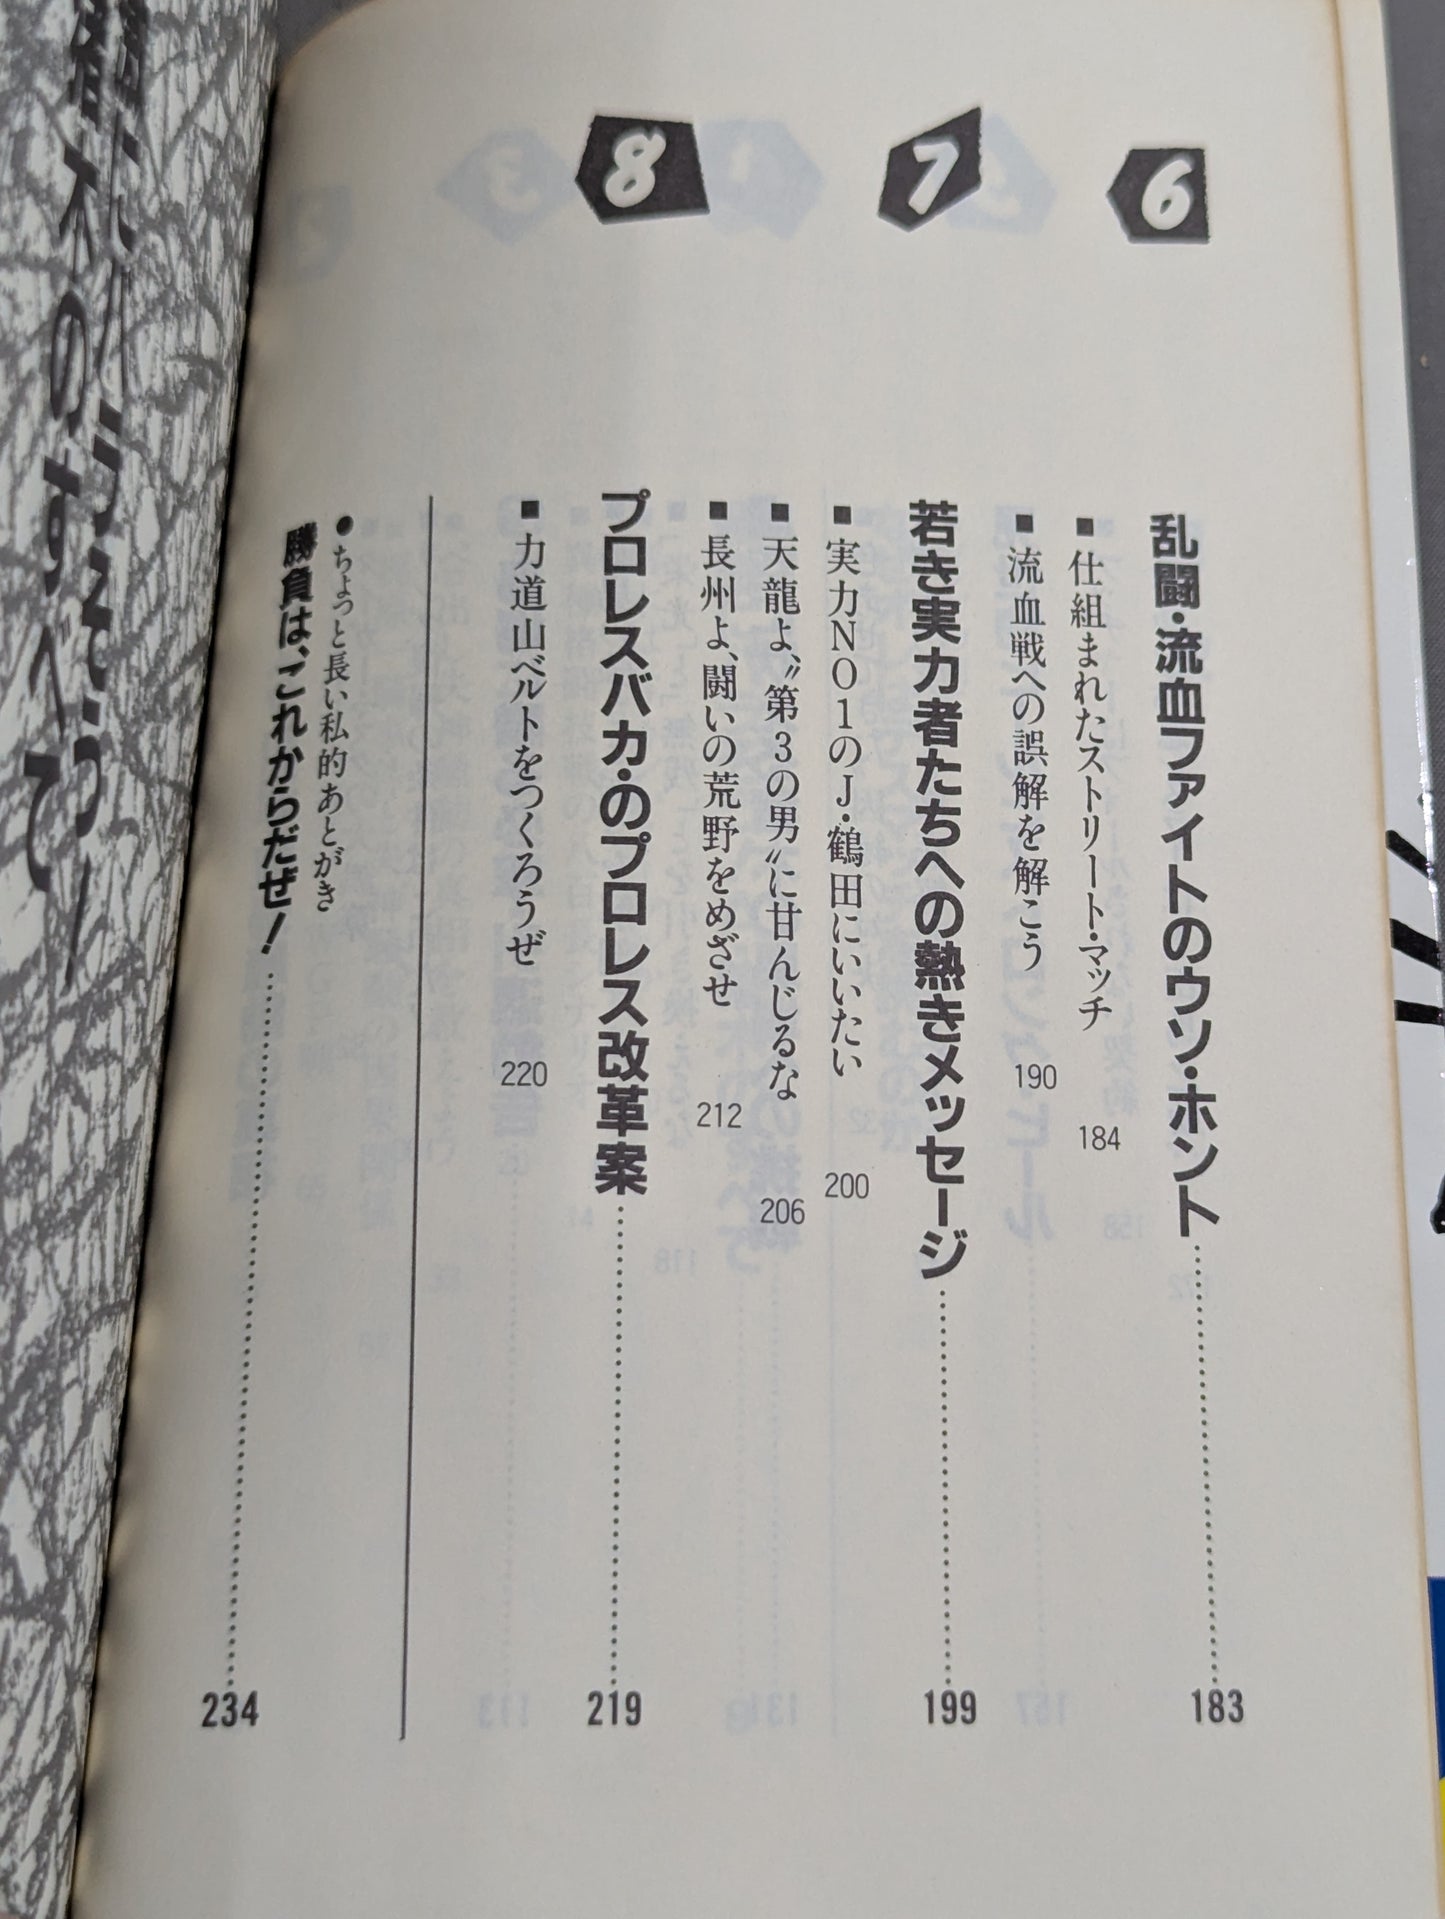 6
乱闘・流血ファイトのウソ・ホント 183
■仕組まれたストリート・マッチ 184
■流血戦への誤解を解こう 190
7
若き実力者たちへの熱きメッセージ 199
■実力NO1のJ・鶴田にいいたい 200
■天龍よ、〝第3の男〟に甘んじるな 206
■長州よ、闘いの荒野をめざせ 212
8
プロレスバカ・のプロレス改革案 219
■力道山ベルトをつくろうぜ 220
●ちょっと長い私的あとがき
勝負は、これからだぜ! 234
木のすべて